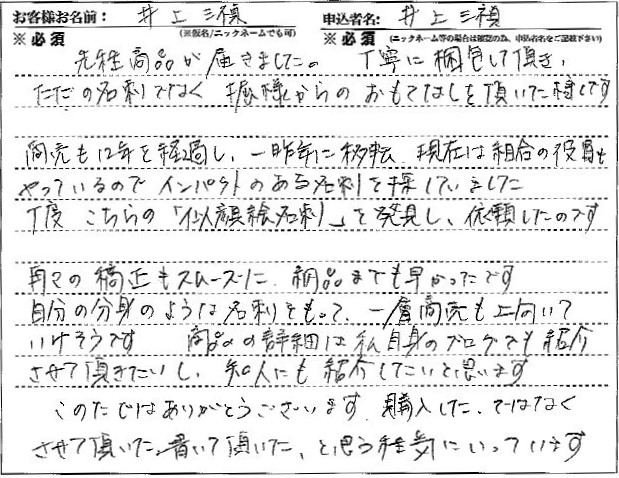 お客様お名前： 井上三禎 申込者名： 井上三禎
※必須 （※仮名/ニックネームでも可） ※必須 （ニックネーム等の場合は確認の為、申込者名をご記載下さい）
先程商品が届きました。 丁寧に梱包して頂き、
ただの名刺でなく 堀様からの おもてなしを頂いた様です
商売も12年を経過し、一昨年に移転 現在は組合の役員も
やっているので インパクトのある名刺を探していました
丁度 こちらの「似顔絵名刺」を発見し、依頼したのです
再々の稿正もスムーズに、納品までも早かったです
自分の分身のような名刺をもって、一層商売も上向いて
いけそうです 商品の詳細は私自身のブログでも紹介
させて頂きたいし、知人にも紹介したいと思います
このたびはありがとうございます 購入した、ではなく
させて頂いた。書いて頂いた、と思う程気にいっています